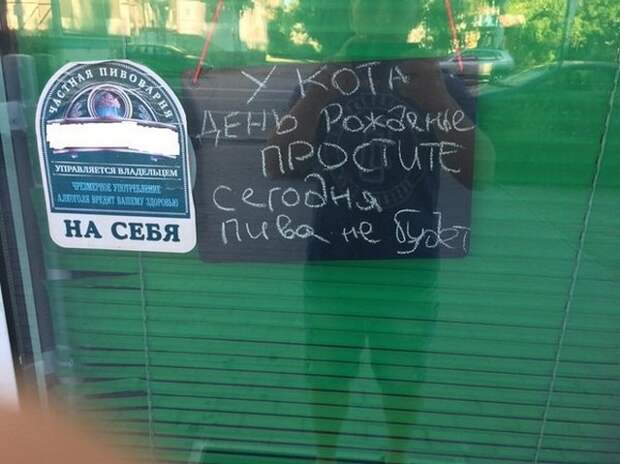 ЧАСТНАЯ ПИВОВАРНЯ
УПРАВЛЯЕТСЯ ВЛАДЕЛЬЦЕМ
ЧРЕЗМЕРНОЕ УПОТРЕБЛЕНИЕ
АЛКОГОЛЯ ВРЕДИТ ВАШЕМУ ЗДОРОВЬЮ
НА СЕБЯ
У КОТА
ДЕНЬ Рожденье
ПРОСТИТЕ
сегодня
пива не будет